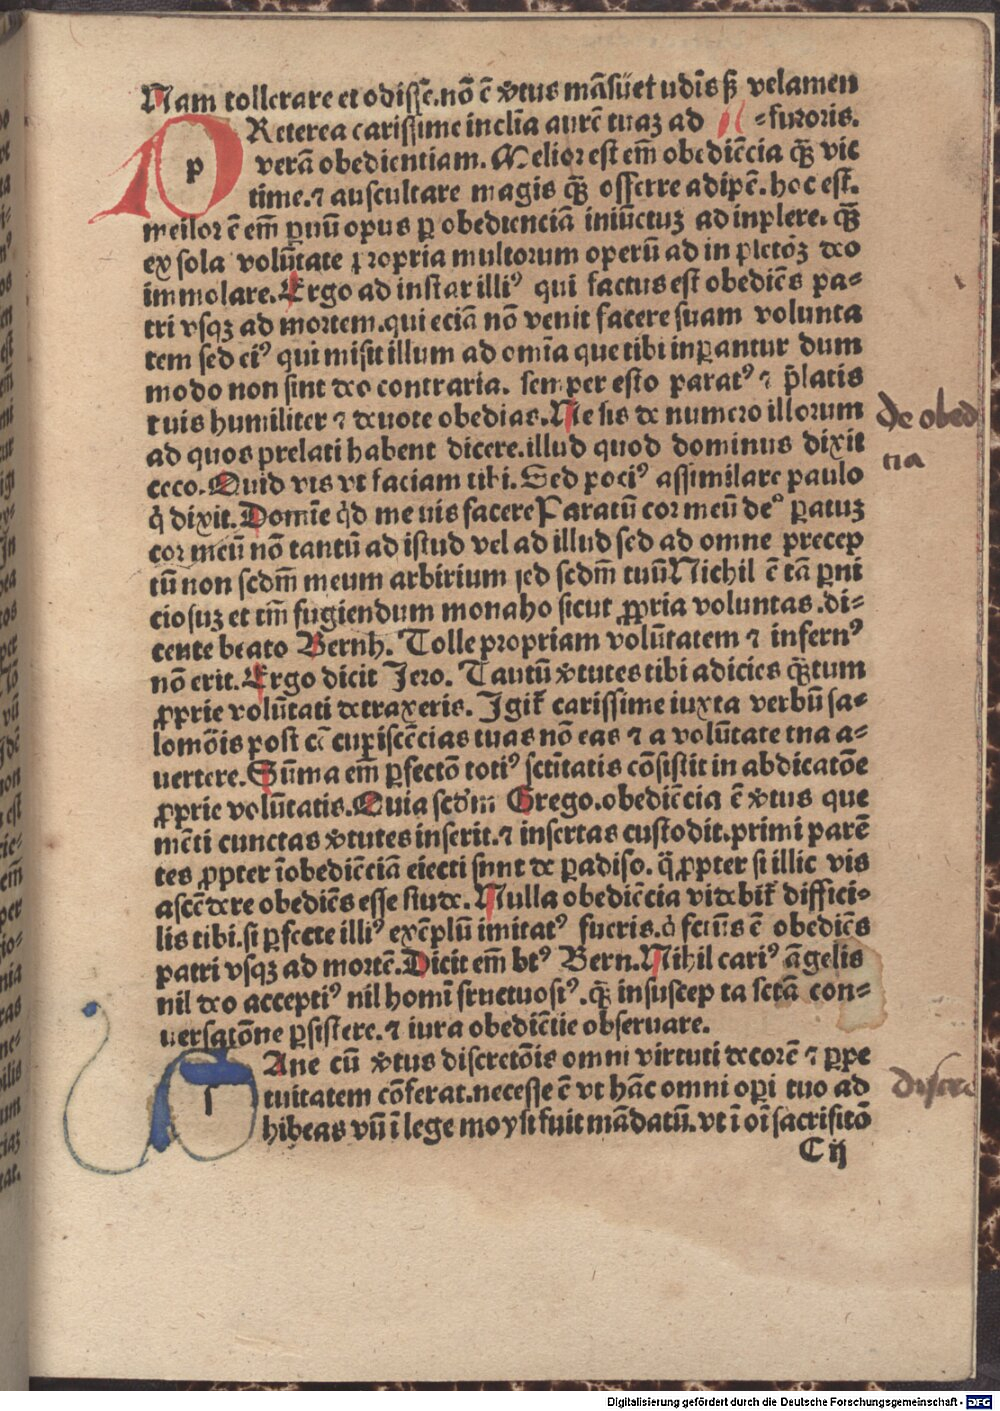 Nam tollerare et odisse̅.no̅ e̅ v̓tus ma̅suetudi̅s sʒ velamen
PReterea carissime incli̅a aure̅ tuaʒ ad ⸗furoris.
vera̅ obedientiam. Melior est em̅ obedie̅cia qʒ̅ vic
time.⁊ auscultare magis qʒ̅ offerre adipe̅.hoc est.
meilor e̅ em̅ ꝑuu̅ opus ꝑ obediencia̅ iniu̅ctuʒ ad inplere. qʒ̅
ex sola volu̅tate propria multorum operu̅ ad in pleto̅ʒ deo
immolare.Ergo ad instar illiꝰ qui factus est obedie̅s pa⸗
tri vsqʒ ad mortem.qui ecia̅ no̅ venit facere suam volunta
tem sed eiꝰ qui misit illum ad omi̅a que tibi inꝑantur dum
modo non sint deo contraria. semper esto paratꝰ ⁊ p̅latis
tuis humiliter ⁊ deuote obedias.Ne sis de numero illorum
ad quos prelati habent dicere.illud quod dominus dixit
ceco.Quid vis vt faciam tibi.Sed pociꝰ assimilare paulo
q̇ dixit.Domi̅e q̇d me uis facere Paratu̅ cor meu̅ deꝰ ꝑatuʒ
cor meu̅ no̅ tantu̅ ad istud vel ad illud sed ad omne precep
tu̅ non scdm̅ meum arbirium sed scdm̅ tuu̅ Nichil e̅ ta̅ ꝑni
ciosuʒ et tm̅ fugiendum monaho sicut ꝓpria voluntas.di⸗
cente beato Bernh. Tolle propriam volu̅tatem ⁊ infernꝰ
no̅ erit.Ergo dicit Jero. Tantu̅ v̓tutes tibi adicies qʒ̅tum
ꝓprie volu̅tati detraxeris. Igit̓ carissime iuxta verbu̅ sa⸗
lomo̅is post co̅cupisce̅cias tuas no̅ eas ⁊ a volu̅tate tna a⸗
uertere.Su̅ma em̅ ꝑfecto̅ totiꝰ sc̅titatis co̅sistit in abdicato̅e
ꝓprie volu̅tatis.Quia scd̓m Grego.obedie̅cia e̅ v̓tus que
me̅ti cunctas v̓tutes inserit.⁊ insertas custodit.primi pare̅
tes ꝓpter i̅obedie̅cia̅ eiecti snnt de ꝑadiso. q̅ ꝓpter si illic vis
asce̅dere obedie̅s esse stude.Nulla obedie̅cia videbit̓ diffici⸗
lis tibi.si ꝑfecte illiꝰ exe̅plu̅ imitatꝰ fueris.q̇ fctu̅s e̅ obedie̅s
patri vsqʒ ad morte̅.Dicit em̅ btꝰ Bern.Nihil cariꝰ a̅gelis
nil deo acceptiꝰ nil homi̅ fructuosiꝰ.qʒ̅ in suscep ta sc̅ta̅ con⸗
uersato̅ne ꝑsistere.⁊ iura obedie̅tie obseruare.
Ane cu̅ v̓tus discreto̅is omni virtuti decore̅ ⁊ ꝑpe
tuitatem co̅ferat.necesse e̅ vt ha̅c omni oꝑi tuo ad
hibeas vn̅ i̅ lege moysi fuit ma̅datu̅.vt i̅ oi̅ sacrifito̅
C ij
de obed
tia
discre
Digitalisierung gefördert durch die Deutsche Forschungsgemeinschaft - DFG